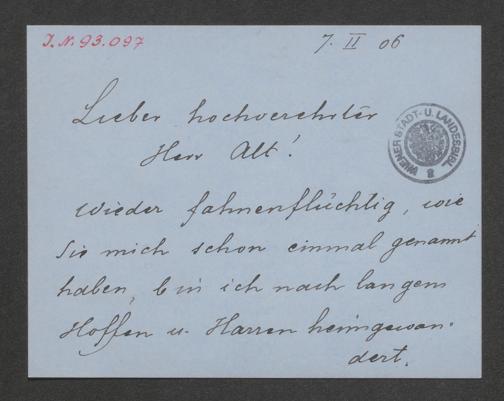 I. N. 93.097
7. II 06
Lieber hochverehrter
Herr Alt!
WIENER STADT- U. LANDESBIBL.
8
wieder fahnenflüchtig, wie
Sie mich schon einmal genannt
haben, bin ich nach langem
Hoffen u. Harren heimgewan-
dert.